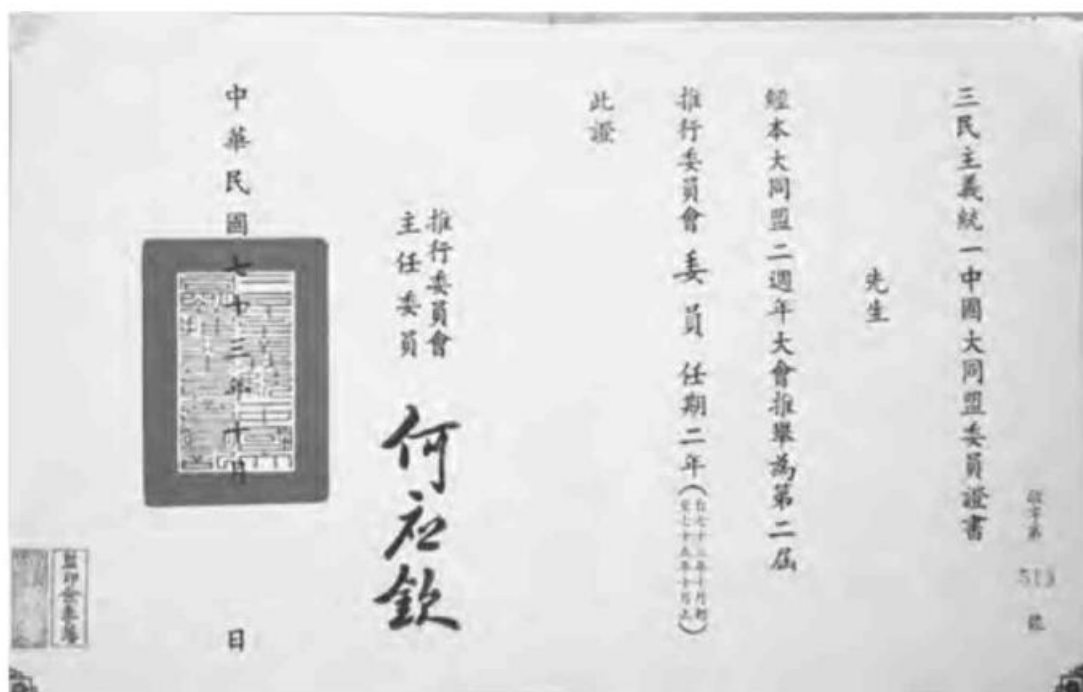 三民主義統一中國大同盟委員證書
字第513號
先生
經本大同盟二週年大會推舉為第二屆
推行委員會委員任期二年(自七十三年十月起至七十五年十月止)
此證
推行委員會
主任委員
何應欽
中華民國七十三年十月 日
監印